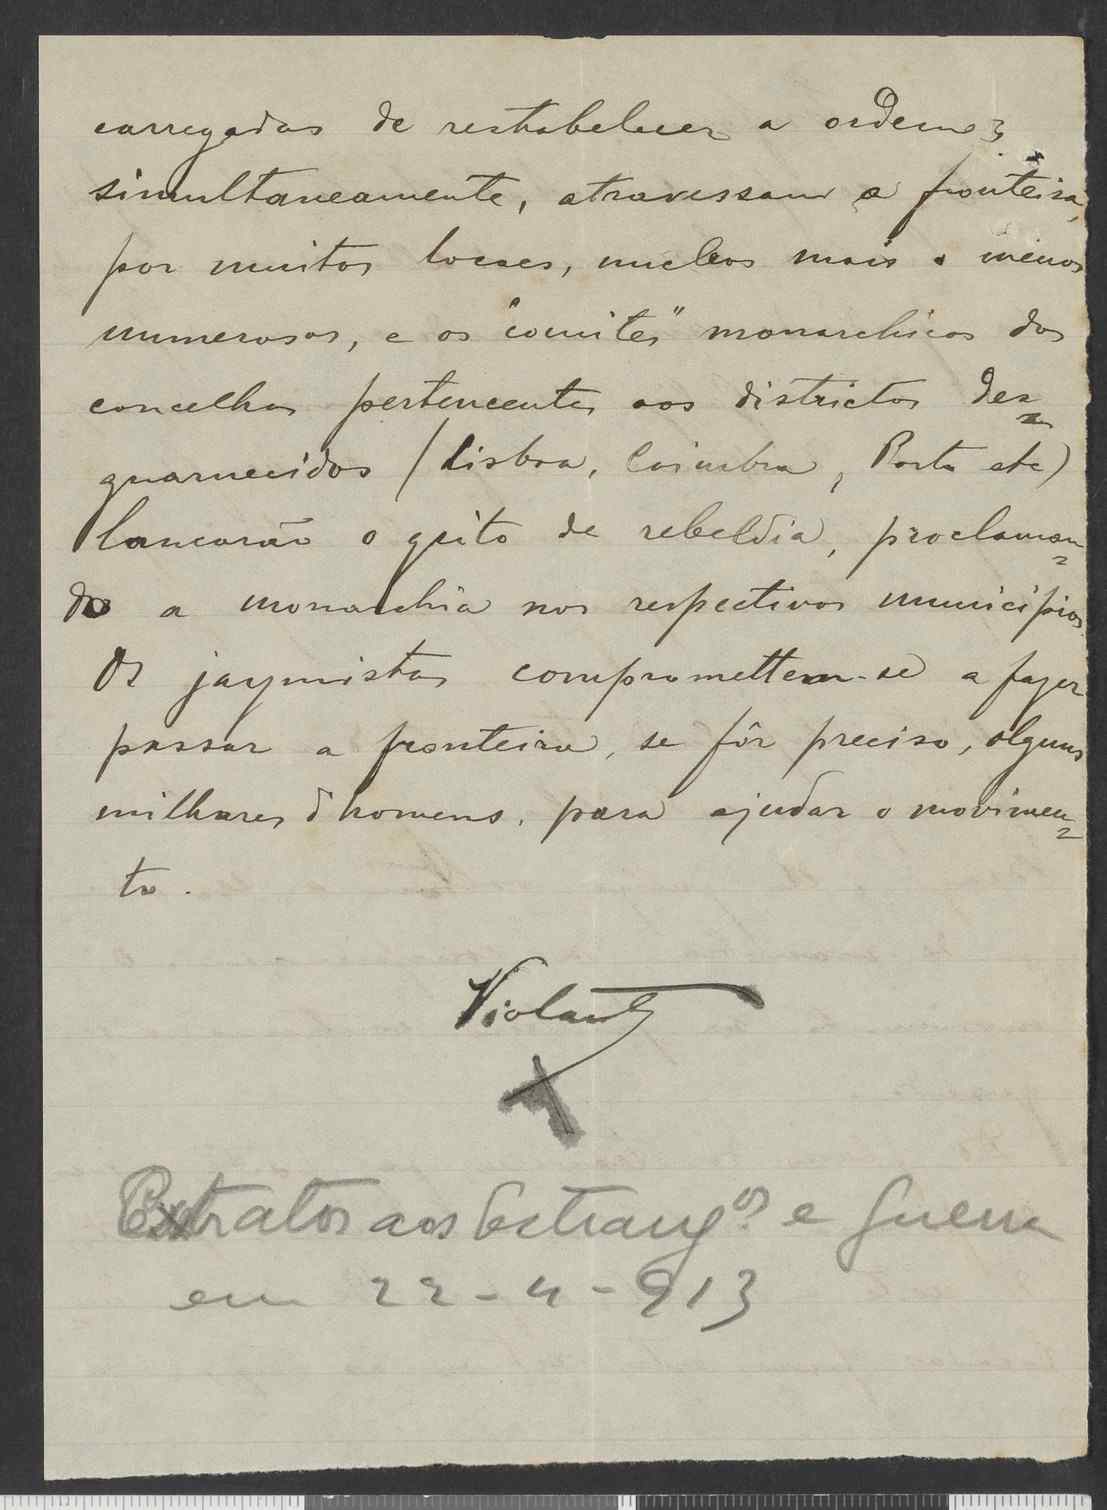 carregadas de restabelecer a ordem;
simultaneamente, atravessam a fronteira,
por muitos locaes, nucleos mais o menos
numerosos, e os "comités" monarchicos dos
concelhos pertencentes aos districtos des=
guarnecidos (Lisboa, Coimbra, Porto etc)
lancarão o grito de rebeldia, proclaman=
do a monarchia nos respectivos municipios.
Os jaymistas comprometem-se a fazer
passar a fronteira, se fôr preciso, alguns
milhares d'homens, para ajudar o movimen=
to.
Violante
X
Extratos aos Estrangos e Guerra
em 22-4-913